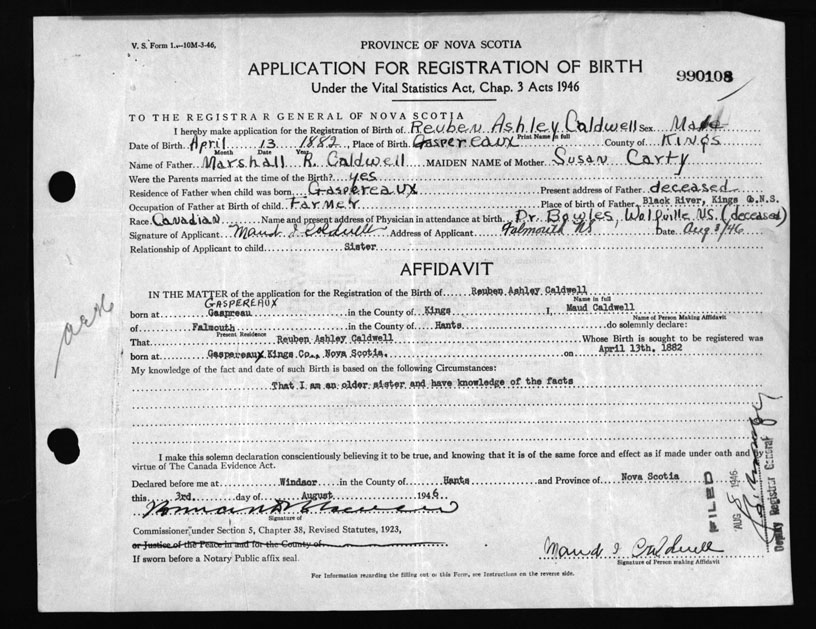 V. S. Form 1.-10M-3-46,
PROVINCE OF NOVA SCOTIA
APPLICATION FOR REGISTRATION OF BIRTH
990108
Under the Vital Statistics Act, Chap. 3 Acts 1946
TO THE REGISTRAR GENERAL OF NOVA SCOTIA
I hereby make application for the Registration of Birth of Reuben Ashley Caldwell Sex Male
Print Name in full
Date of Birth April 13 1882, Place of Birth Gaspereaux County of Kings
Month Date Year
Name of Father Marshall R. Caldwell MAIDEN NAME of Mother Susan Carty
Were the Parents married at the time of the Birth? yes
Residence of Father when child was born Gaspereaux Present address of Father deceased
Occupation of Father at Birth of child Farmer Place of birth of Father Black River, Kings Co. N.S.
Race Canadian Name and present address of Physician in attendance at birth Dr. Bowles, Wolfville N.S. (deceased)
Signature of Applicant Maud I Caldwell Address of Applicant Falmouth NS Date Aug 3/46
Relationship of Applicant to child Sister
AFFIDAVIT
IN THE MATTER of the application for the Registration of the Birth of Reuben Ashley Caldwell
Name in full
GASPEREAUX
born at Gaspreau in the County of Kings I, Maud Caldwell
Name of Person Making Affidavit
of Falmouth in the County of Hants do solemnly declare:
Present Residence
That Reuben Ashley Caldwell Whose Birth is sought to be registered was
born at Gaspereaux Kings Co., Nova Scotia. on April 13th, 1882
My knowledge of the fact and date of such Birth is based on the following Circumstances:
That I am an older sister and have knowledge of the facts
I make this solemn declaration conscientiously believing it to be true, and knowing that it is of the same force and effect as if made under oath and by
virtue of The Canada Evidence Act.
Declared before me at Windsor in the County of Hants and Province of Nova Scotia
this 3rd. day of August 1946
Signature of
Commissioner under Section 5, Chapter 38, Revised Statutes, 1923,
or Justice of the Peace in and for the County of
If sworn before a Notary Public affix seal.
Maud I Caldwell
Signature of Person making Affidavit
For Information regarding the filling out of this Form, see Instructions on the reverse side.
FILED
AUG 8 1946
Deputy Registrar General